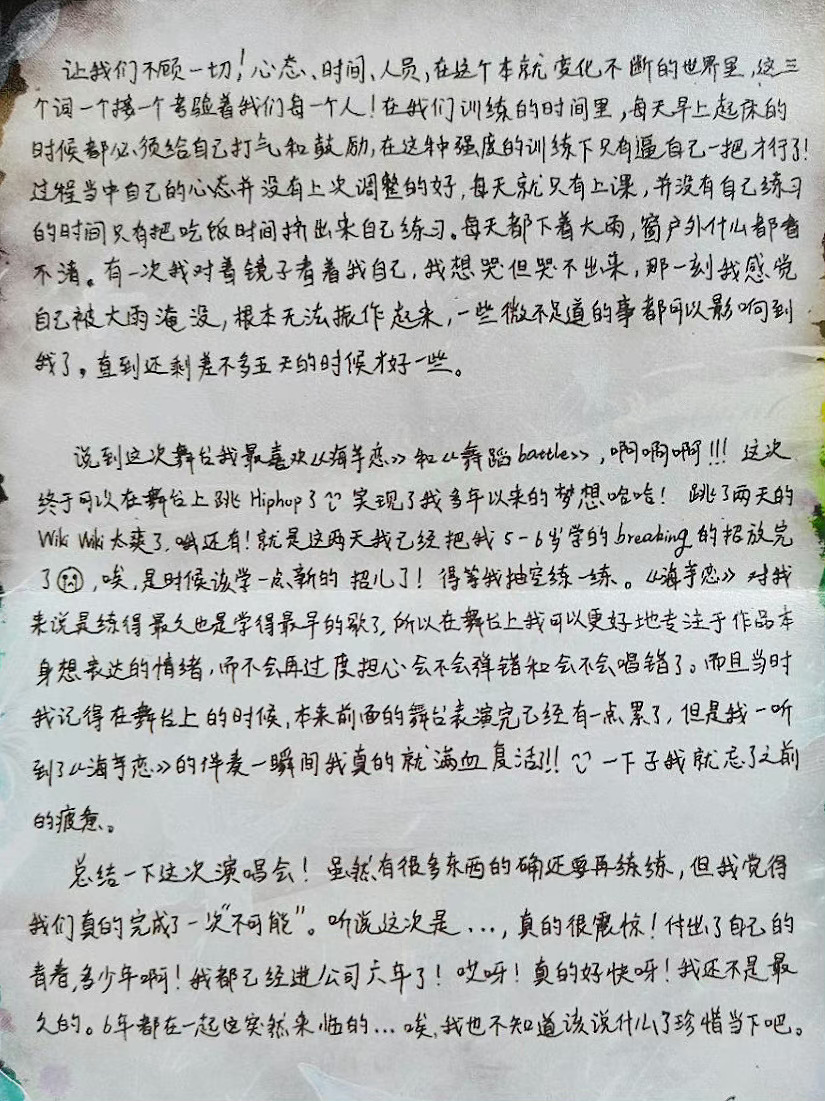 让我们不顾一切！心态、时间、人员，在这个本就变化不断的世界里，这三
个词一个接一个考验着我们每一个人！在我们训练的时间里，每天早上起床的
时候都必须给自己打气和鼓励，在这种强度的训练下只有逼自己一把才行了！
过程当中自己的心态并没有上次调整的好，每天就只有上课，并没有自己练习
的时间只有把吃饭时间挤出来自己练习。每天都下着大雨，窗户外什么都看
不清。有一次我对着镜子看着我自己，我想哭但哭不出来，那一刻我感觉
自己被大雨淹没，根本无法振作起来，一些微不足道的事都可以影响到
我了。直到还剩差不多五天的时候才好一些。
说到这次舞台我最喜欢《海芋恋》和《舞蹈battle》，啊啊啊!!! 这次
终于可以在舞台上跳Hiphop了 实现了我多年以来的梦想哈哈！跳了两天的
Wiki Wiki太爽了，哦还有！就是这两天我已经把我5-6岁学的breaking的招放完
了，唉，是时候该学一点新的招儿了！得等我抽空练一练。《海芋恋》对我
来说是练得最久也是学得最早的歌了，所以在舞台上我可以更好地专注于作品本
身想表达的情绪，而不会再过度担心会不会弹错和会不会唱错了。而且当时
我记得在舞台上的时候，本来前面的舞台表演完已经有一点累了，但是我一听
到了《海芋恋》的伴奏一瞬间我真的就满血复活了!!! 一下子我就忘了之前
的疲惫。
总结一下这次演唱会！虽然有很多东西的确还要再练练，但我觉得
我们真的完成了一次“不可能”。听说这次是...，真的很震惊！付出了自己的
青春，多少年啊！我都已经进公司六年了！哎呀！真的好快呀！我还不是最
久的。6年都在一起这突然来临的...唉，我也不知道该说什么了珍惜当下吧。